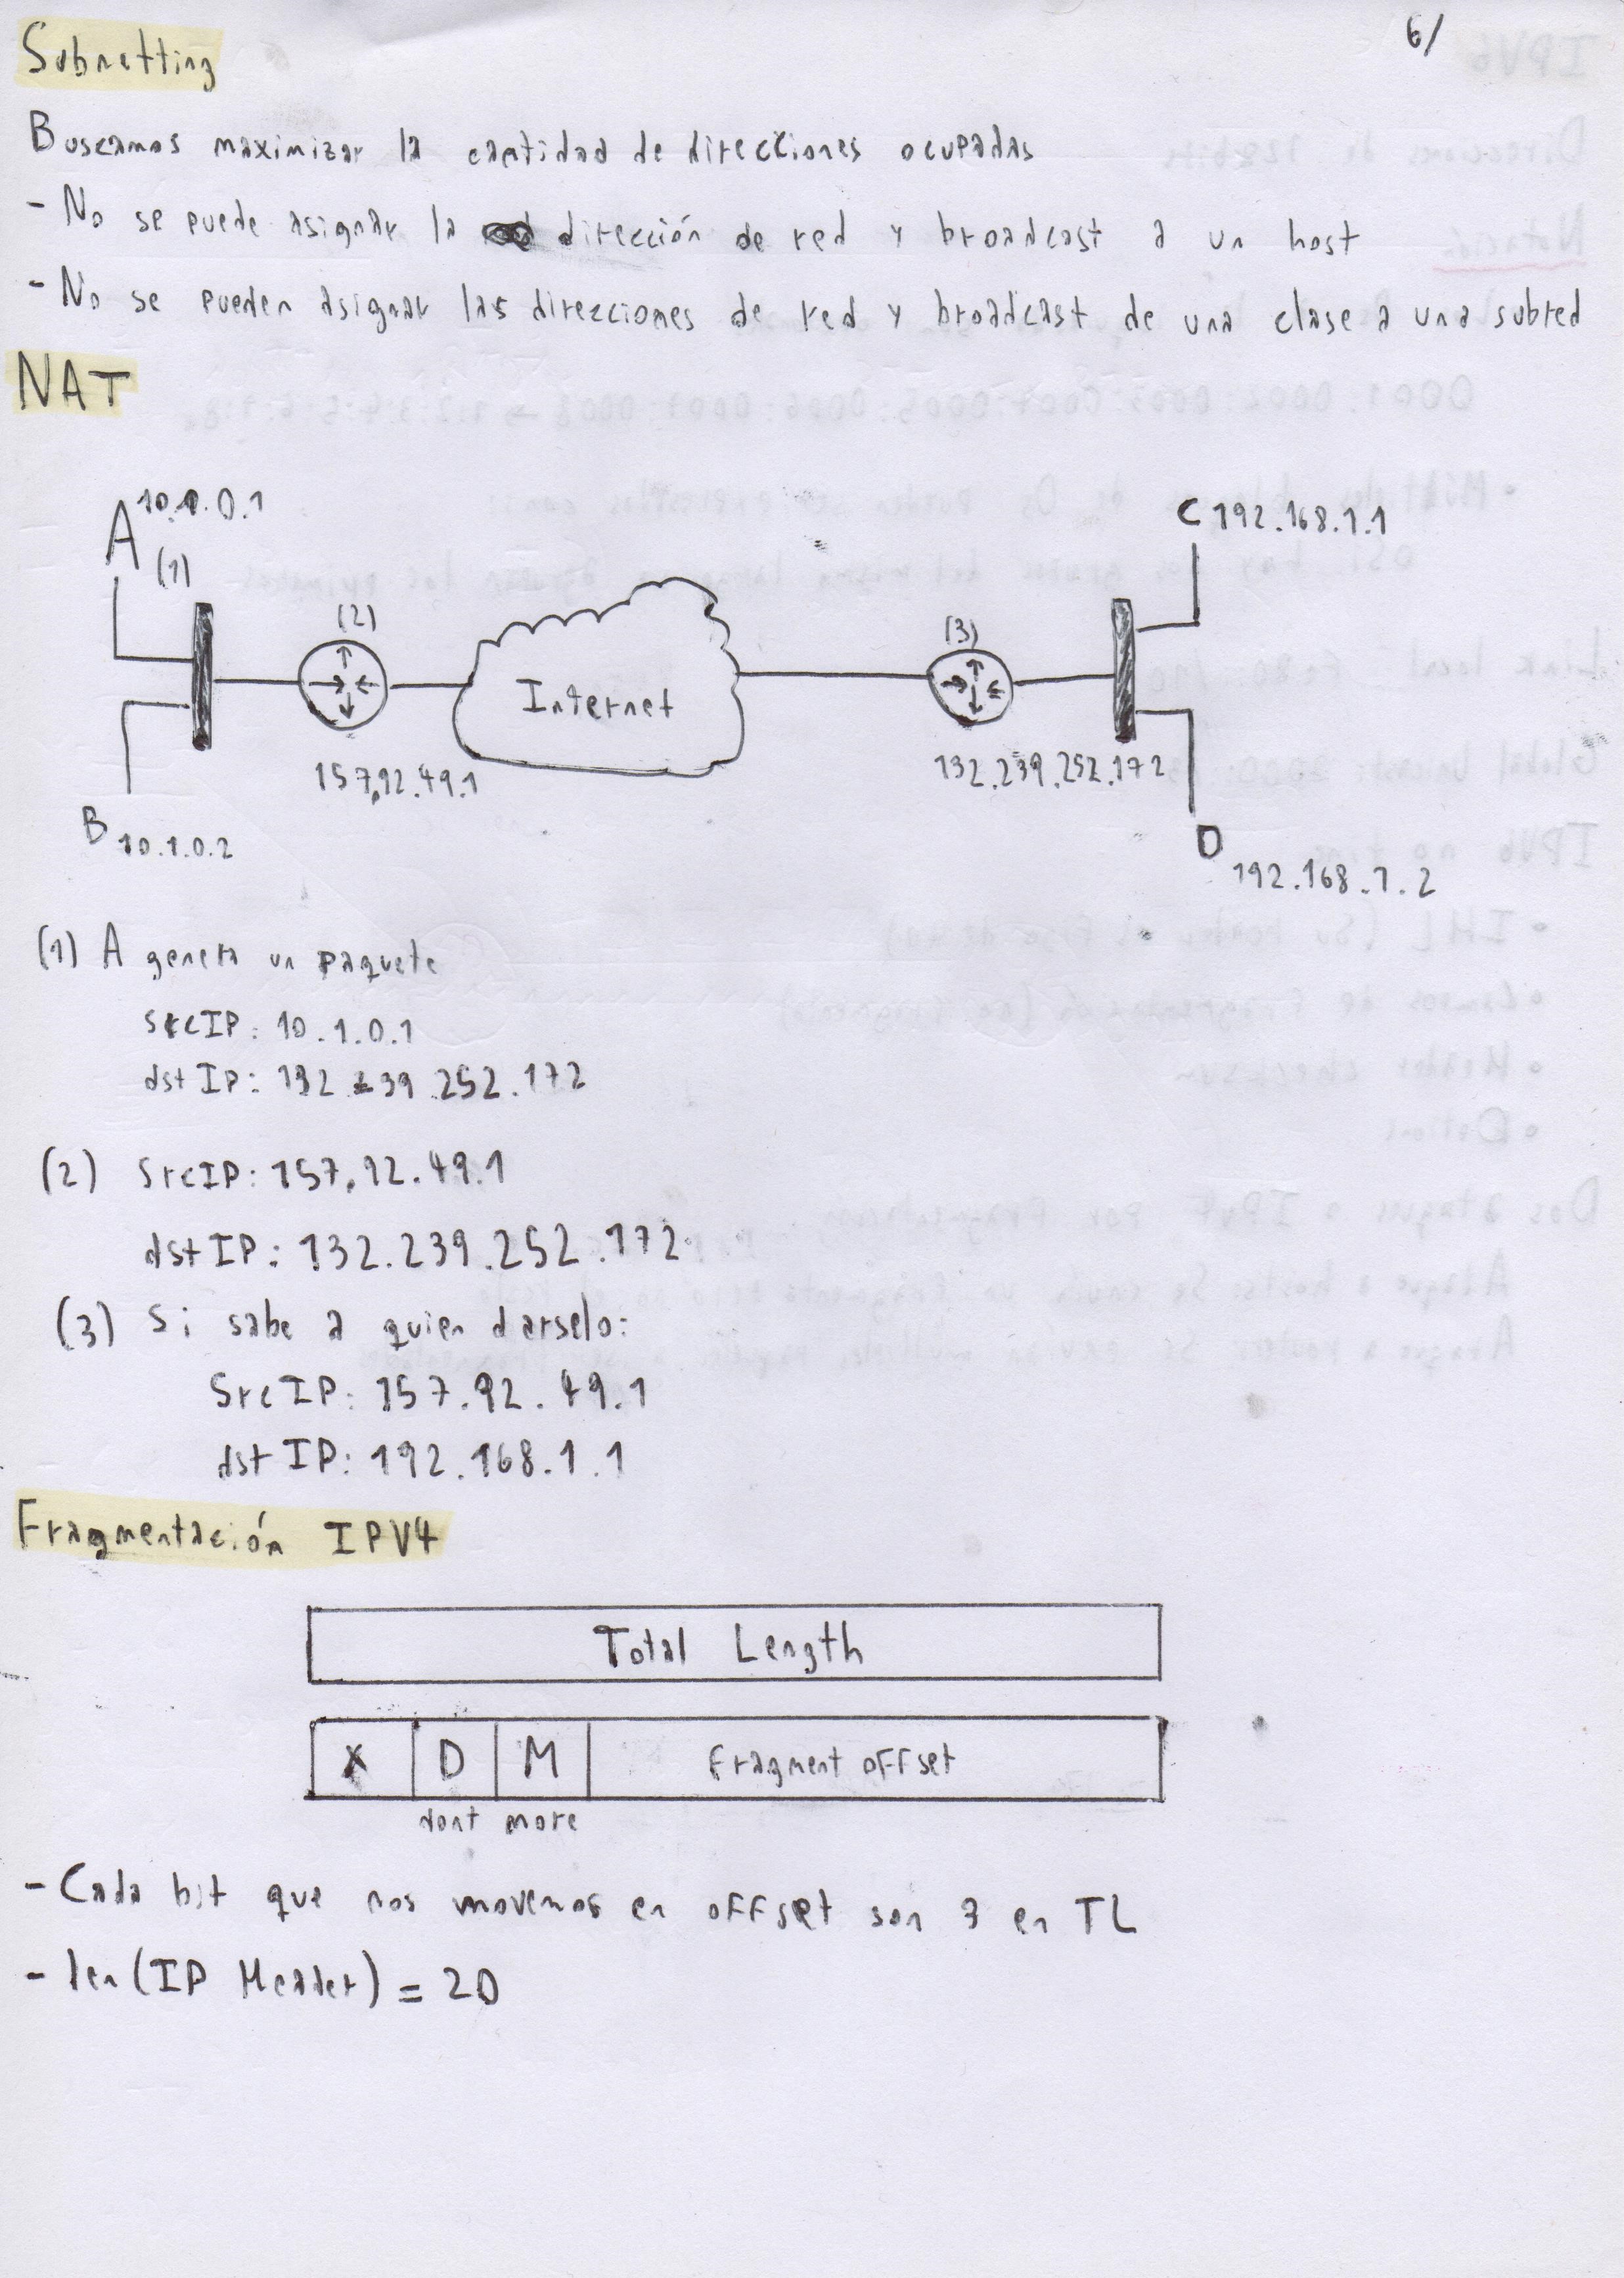 6/
Subnetting
Buscamos maximizar la cantidad de direcciones ocupadas
- No se puede asignar la dirección de red y broadcast a un host
- No se pueden asignar las direcciones de red y broadcast de una clase a una subred
NAT
A 10.1.0.1
(1)
C 192.168.1.1
(2)
(3)
Internet
157.92.49.1
132.239.252.172
B 10.1.0.2
D 192.168.1.2
(1) A genera un paquete
srcIP: 10.1.0.1
dstIP: 132.239.252.172
(2) SrcIP: 157.92.49.1
dstIP: 132.239.252.172
(3) Si sabe a quien darselo:
SrcIP: 157.92.49.1
dstIP: 192.168.1.1
Fragmentación IPV4
Total Length
X D M fragment offset
dont more
- Cada bit que nos movemos en offset son en TL
- len(IP Header) = 20